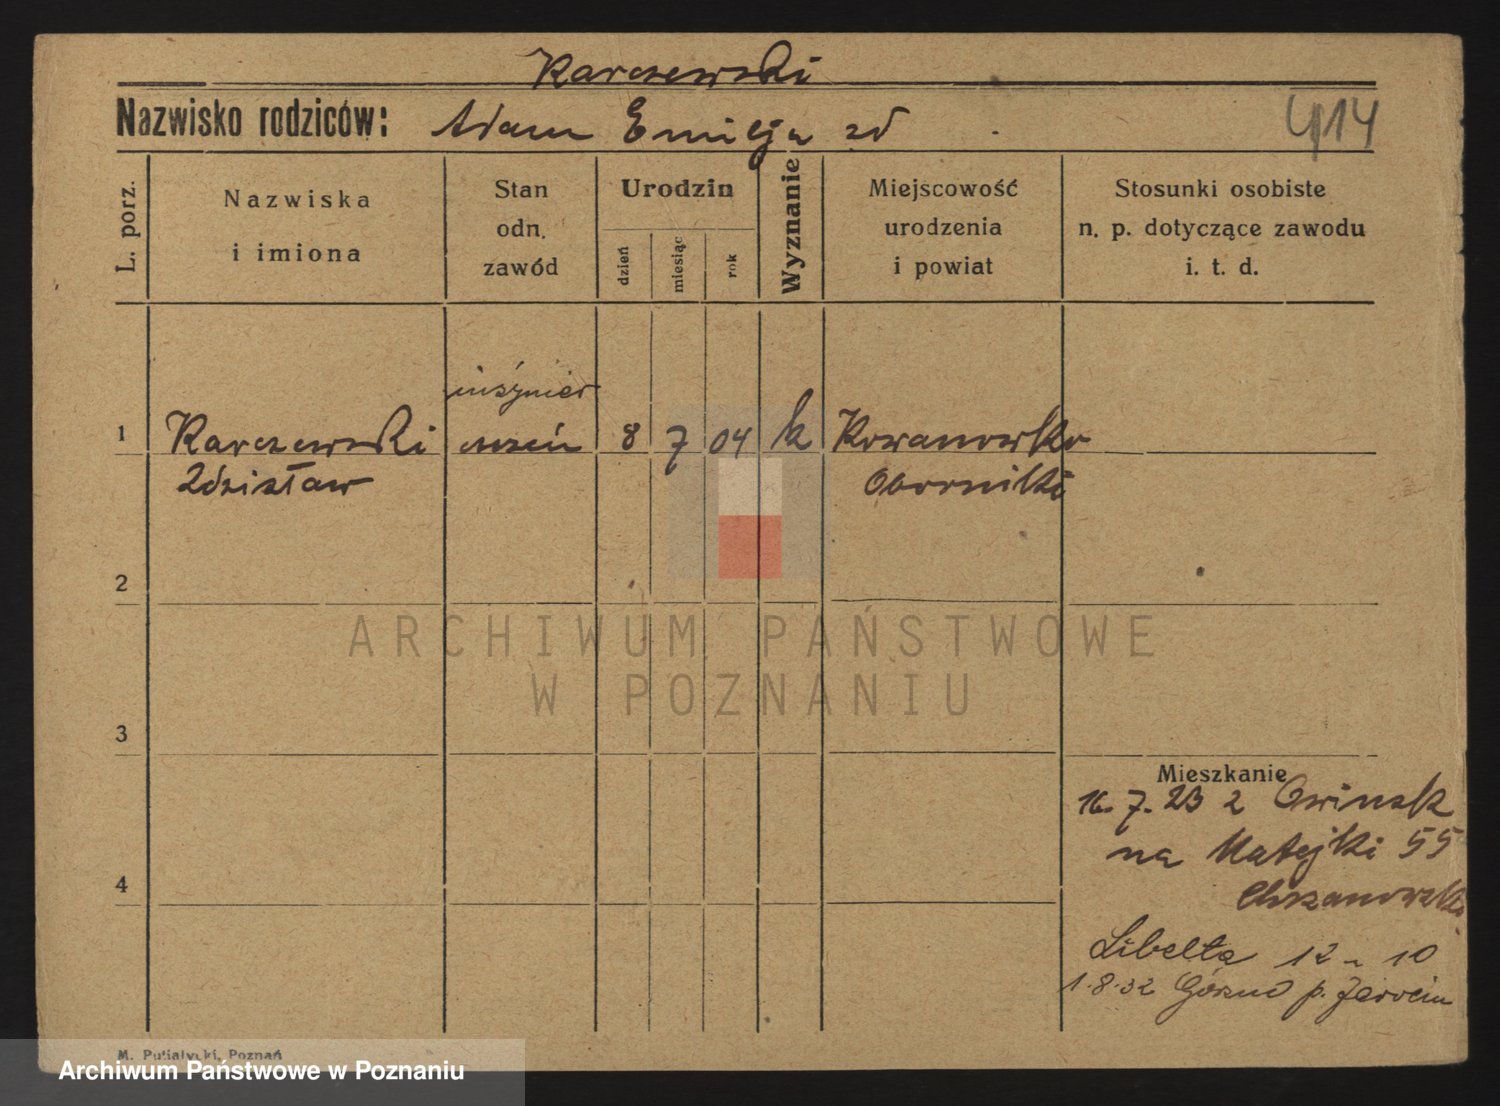 Karczewski
Nazwisko rodziców: Adam Emilja zd
414
L. porz.
Nazwiska
i imiona
Stan
odn.
zawód
Urodzin
dzień
miesiąc
rok
Wyznanie
Miejscowość
urodzenia
i powiat
Stosunki osobiste
n. p. dotyczące zawodu
i. t. d.
inżynier
1 Karczewski uczeń 8 7 04 k Kowanowko
Zdzisław Oborniki
2
ARCHIWUM PAŃSTWOWE
W POZNANIU
3
Mieszkanie
16. 7. 23 z Owinsk
na Matejki 55
4
Chrzanowski
Libelta 12 10
1.8.32 Górzno p. Jarocin
M. Putiatycki, Poznań
Archiwum Państwowe w Poznaniu